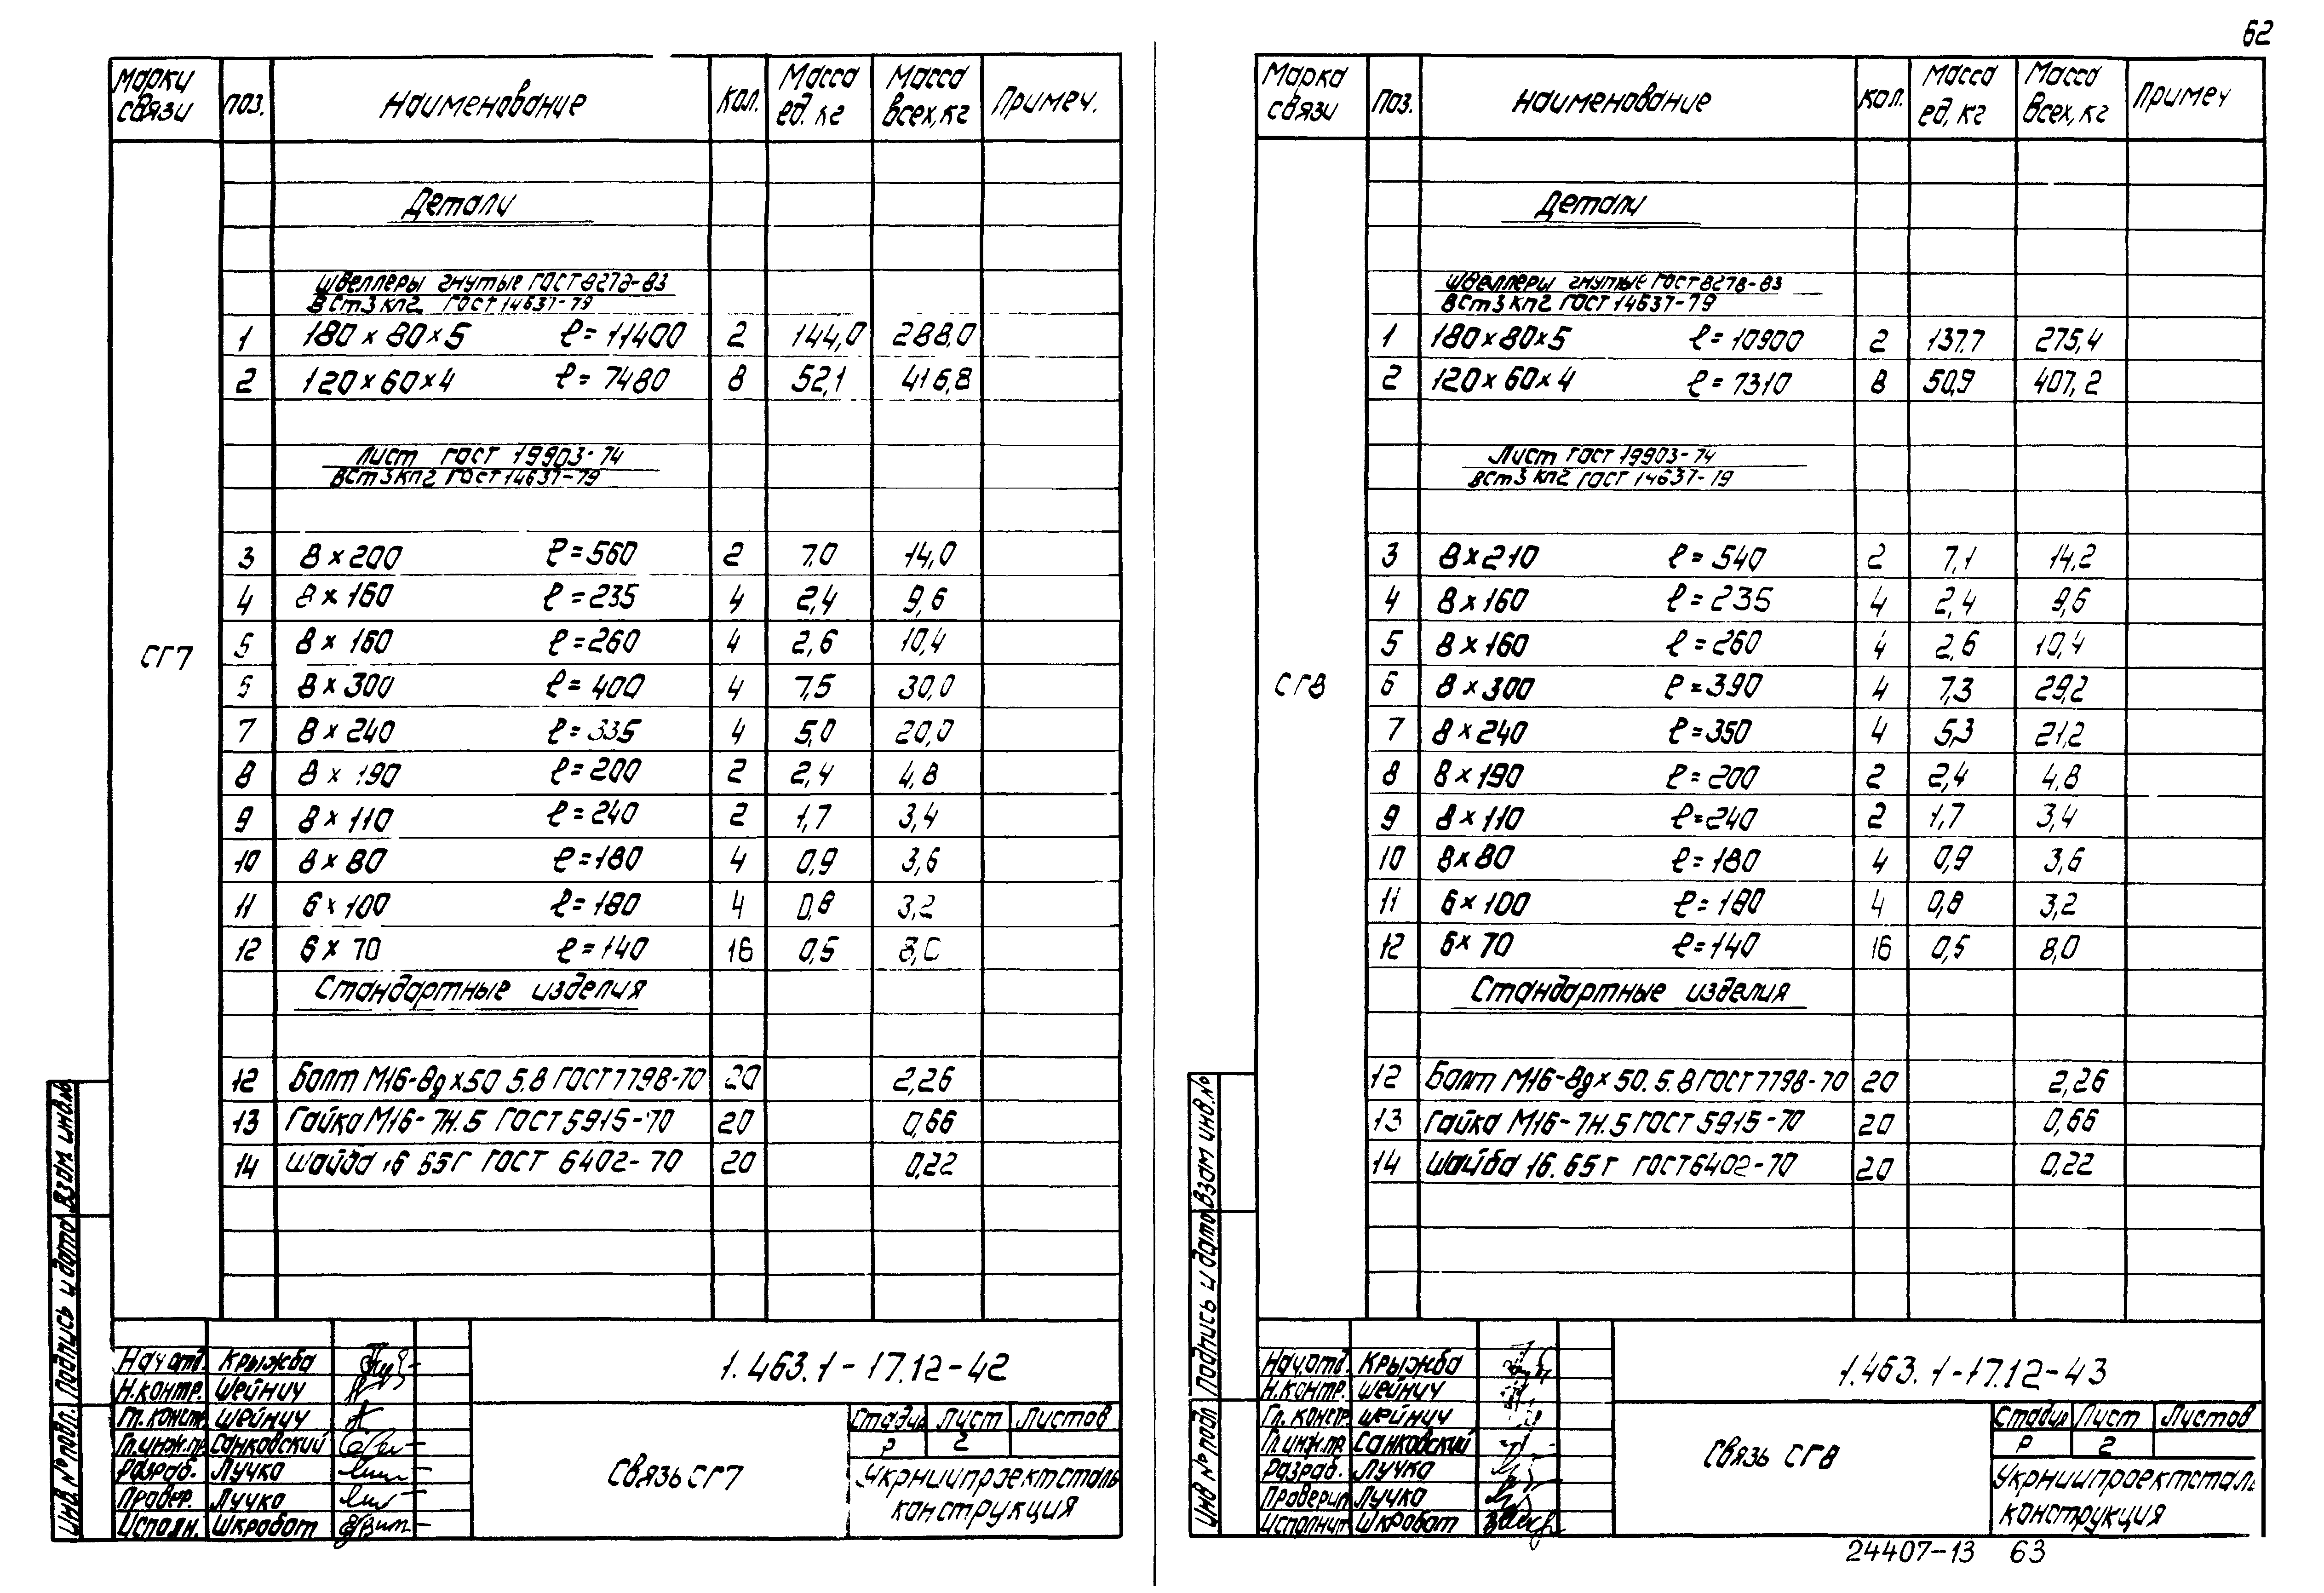 62
Марки связи | поз. | Наименование | Кол. | Масса ед. кг | Масса всех, кг | Примеч.
Детали
Швеллеры гнутые ГОСТ 8278-83
ВСт3кп2 ГОСТ 14637-79
1 | 180×80×5 ℓ=11400 | 2 | 144,0 | 288,0
2 | 120×60×4 ℓ=7480 | 8 | 52,1 | 416,8
Лист ГОСТ 19903-74
ВСт3кп2 ГОСТ 14637-79
3 | 8×200 ℓ=560 | 2 | 7,0 | 14,0
4 | 8×160 ℓ=235 | 4 | 2,4 | 9,6
СГ7
5 | 8×160 ℓ=260 | 4 | 2,6 | 10,4
6 | 8×300 ℓ=400 | 4 | 7,5 | 30,0
7 | 8×240 ℓ=335 | 4 | 5,0 | 20,0
8 | 8×190 ℓ=200 | 2 | 2,4 | 4,8
9 | 8×110 ℓ=240 | 2 | 1,7 | 3,4
10 | 8×80 ℓ=180 | 4 | 0,9 | 3,6
11 | 6×100 ℓ=180 | 4 | 0,8 | 3,2
12 | 6×70 ℓ=140 | 16 | 0,5 | 8,0
Стандартные изделия
12 | Болт М16-8g×50 5.8 ГОСТ 7798-70 | 20 | 2,26
13 | Гайка М16-7Н.5 ГОСТ 5915-70 | 20 | 0,66
14 | Шайба 16 65Г ГОСТ 6402-70 | 20 | 0,22
Инв № подл. | Подпись и дата | Взам. инв. №
Нач.отд. Крыжба
Н.контр. Шейнич
Гл. констр. Шейнич
Гл.инж.пр. Санковский
Разраб. Лучко
Провер. Лучко
Исполн. Шкробот
1.463.1-17.12-42
Связь СГ7
Стадия | Лист | Листов
Р | 2
Укрниипроектсталь
конструкция
Марка связи | Поз. | Наименование | Кол. | Масса ед, кг | Масса всех, кг | Примеч
Детали
Швеллеры гнутые ГОСТ 8278-83
ВСт3кп2 ГОСТ 14637-79
1 | 180×80×5 ℓ=10900 | 2 | 137,7 | 275,4
2 | 120×60×4 ℓ=7310 | 8 | 50,9 | 407,2
Лист ГОСТ 19903-74
ВСт3кп2 ГОСТ 14637-79
3 | 8×210 ℓ=540 | 2 | 7,1 | 14,2
4 | 8×160 ℓ=235 | 4 | 2,4 | 9,6
5 | 8×160 ℓ=260 | 4 | 2,6 | 10,4
СГ8
6 | 8×300 ℓ=390 | 4 | 7,3 | 29,2
7 | 8×240 ℓ=350 | 4 | 5,3 | 21,2
8 | 8×190 ℓ=200 | 2 | 2,4 | 4,8
9 | 8×110 ℓ=240 | 2 | 1,7 | 3,4
10 | 8×80 ℓ=180 | 4 | 0,9 | 3,6
11 | 6×100 ℓ=180 | 4 | 0,8 | 3,2
12 | 6×70 ℓ=140 | 16 | 0,5 | 8,0
Стандартные изделия
12 | Болт М16-8g×50.5.8 ГОСТ 7798-70 | 20 | 2,26
13 | Гайка М16-7Н.5 ГОСТ 5915-70 | 20 | 0,66
14 | Шайба 16.65Г ГОСТ 6402-70 | 20 | 0,22
Инв № подл | Подпись и дата | Взам инв. №
Нач.отд. Крыжба
Н.контр. Шейнич
Гл. констр. Шейнич
Гл.инж.пр. Санковский
Разраб. Лучко
Проверил Лучко
Исполнил Шкробот
1.463.1-17.12-43
Связь СГ8
Стадия | Лист | Листов
Р | 2
Укрниипроектсталь
конструкция
24407-13 63